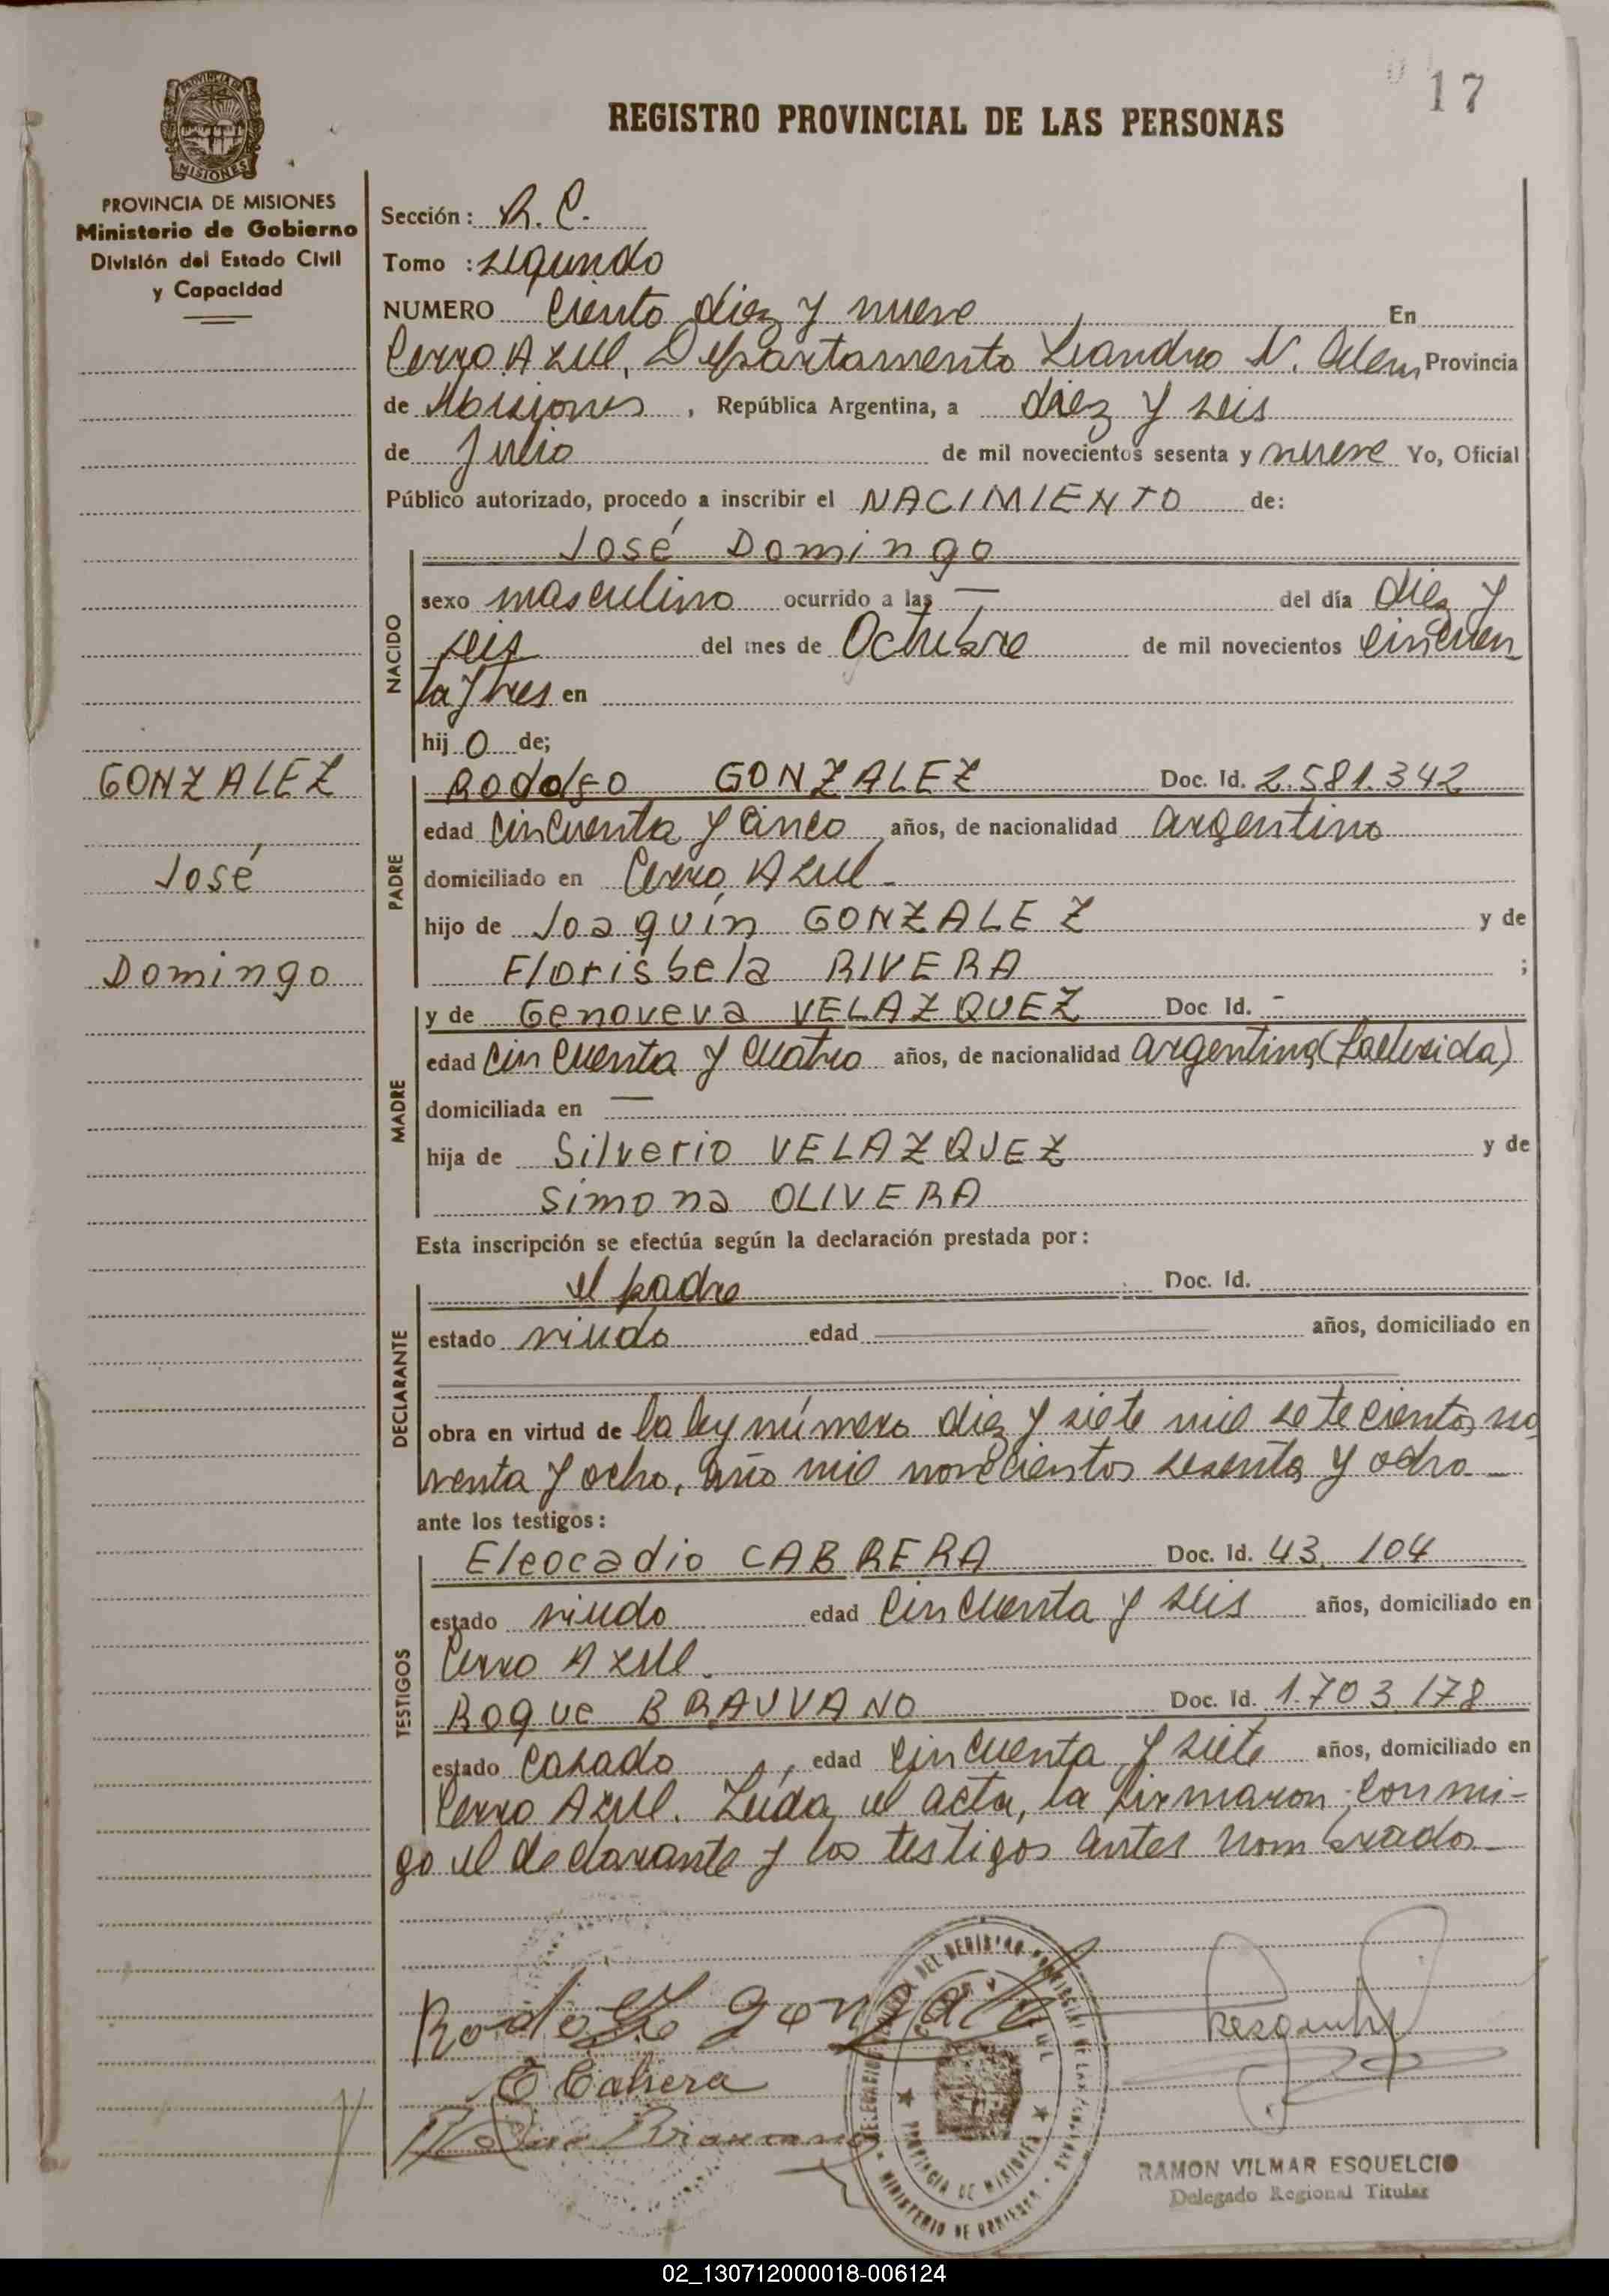 17
REGISTRO PROVINCIAL DE LAS PERSONAS
MISIONES
PROVINCIA DE MISIONES
Ministerio de Gobierno
División del Estado Civil
y Capacidad
Sección: R. C.
Tomo : segundo
NUMERO Ciento diez y nueve En
Cerro Azul, Departamento Leandro N. Alem, Provincia
de Misiones, República Argentina, a diez y seis
de Julio de mil novecientos sesenta y nueve Yo, Oficial
Público autorizado, procedo a inscribir el NACIMIENTO de:
José Domingo
NACIDO
sexo masculino ocurrido a las — del día diez y
seis del mes de Octubre de mil novecientos cincuen
ta y tres en
hij o de;
GONZALEZ
José
Domingo
PADRE
Rodolfo GONZALEZ Doc. Id. 2.581.342
edad cincuenta y cinco años, de nacionalidad argentino
domiciliado en Cerro Azul -
hijo de Joaquín GONZALEZ y de
Florisbela RIVERA ;
MADRE
y de Genoveva VELAZQUEZ Doc Id. -
edad cincuenta y cuatro años, de nacionalidad argentina (fallecida)
domiciliada en —
hija de Silverio VELAZQUEZ y de
Simona OLIVERA
Esta inscripción se efectúa según la declaración prestada por:
DECLARANTE
el padre Doc. Id.
estado viudo edad años, domiciliado en
obra en virtud de la ley número diez y siete mil setecientos no
venta y ocho, año mil novecientos sesenta y ocho -
ante los testigos:
TESTIGOS
Eleocadio CABRERA Doc. Id. 43.104
estado viudo edad cincuenta y seis años, domiciliado en
Cerro Azul.
Roque BRAUVANO Doc. Id. 1.703.178
estado casado, edad cincuenta y siete años, domiciliado en
Cerro Azul. Leída el acta, la firmaron conmi-
go el declarante y los testigos antes nombrados -
Rodolfo Gonzalez
E Cabrera
PROVINCIA DE MISIONES
MINISTERIO DE GOBIERNO
RAMON VILMAR ESQUELCIO
Delegado Regional Titular
02_130712000018-006124